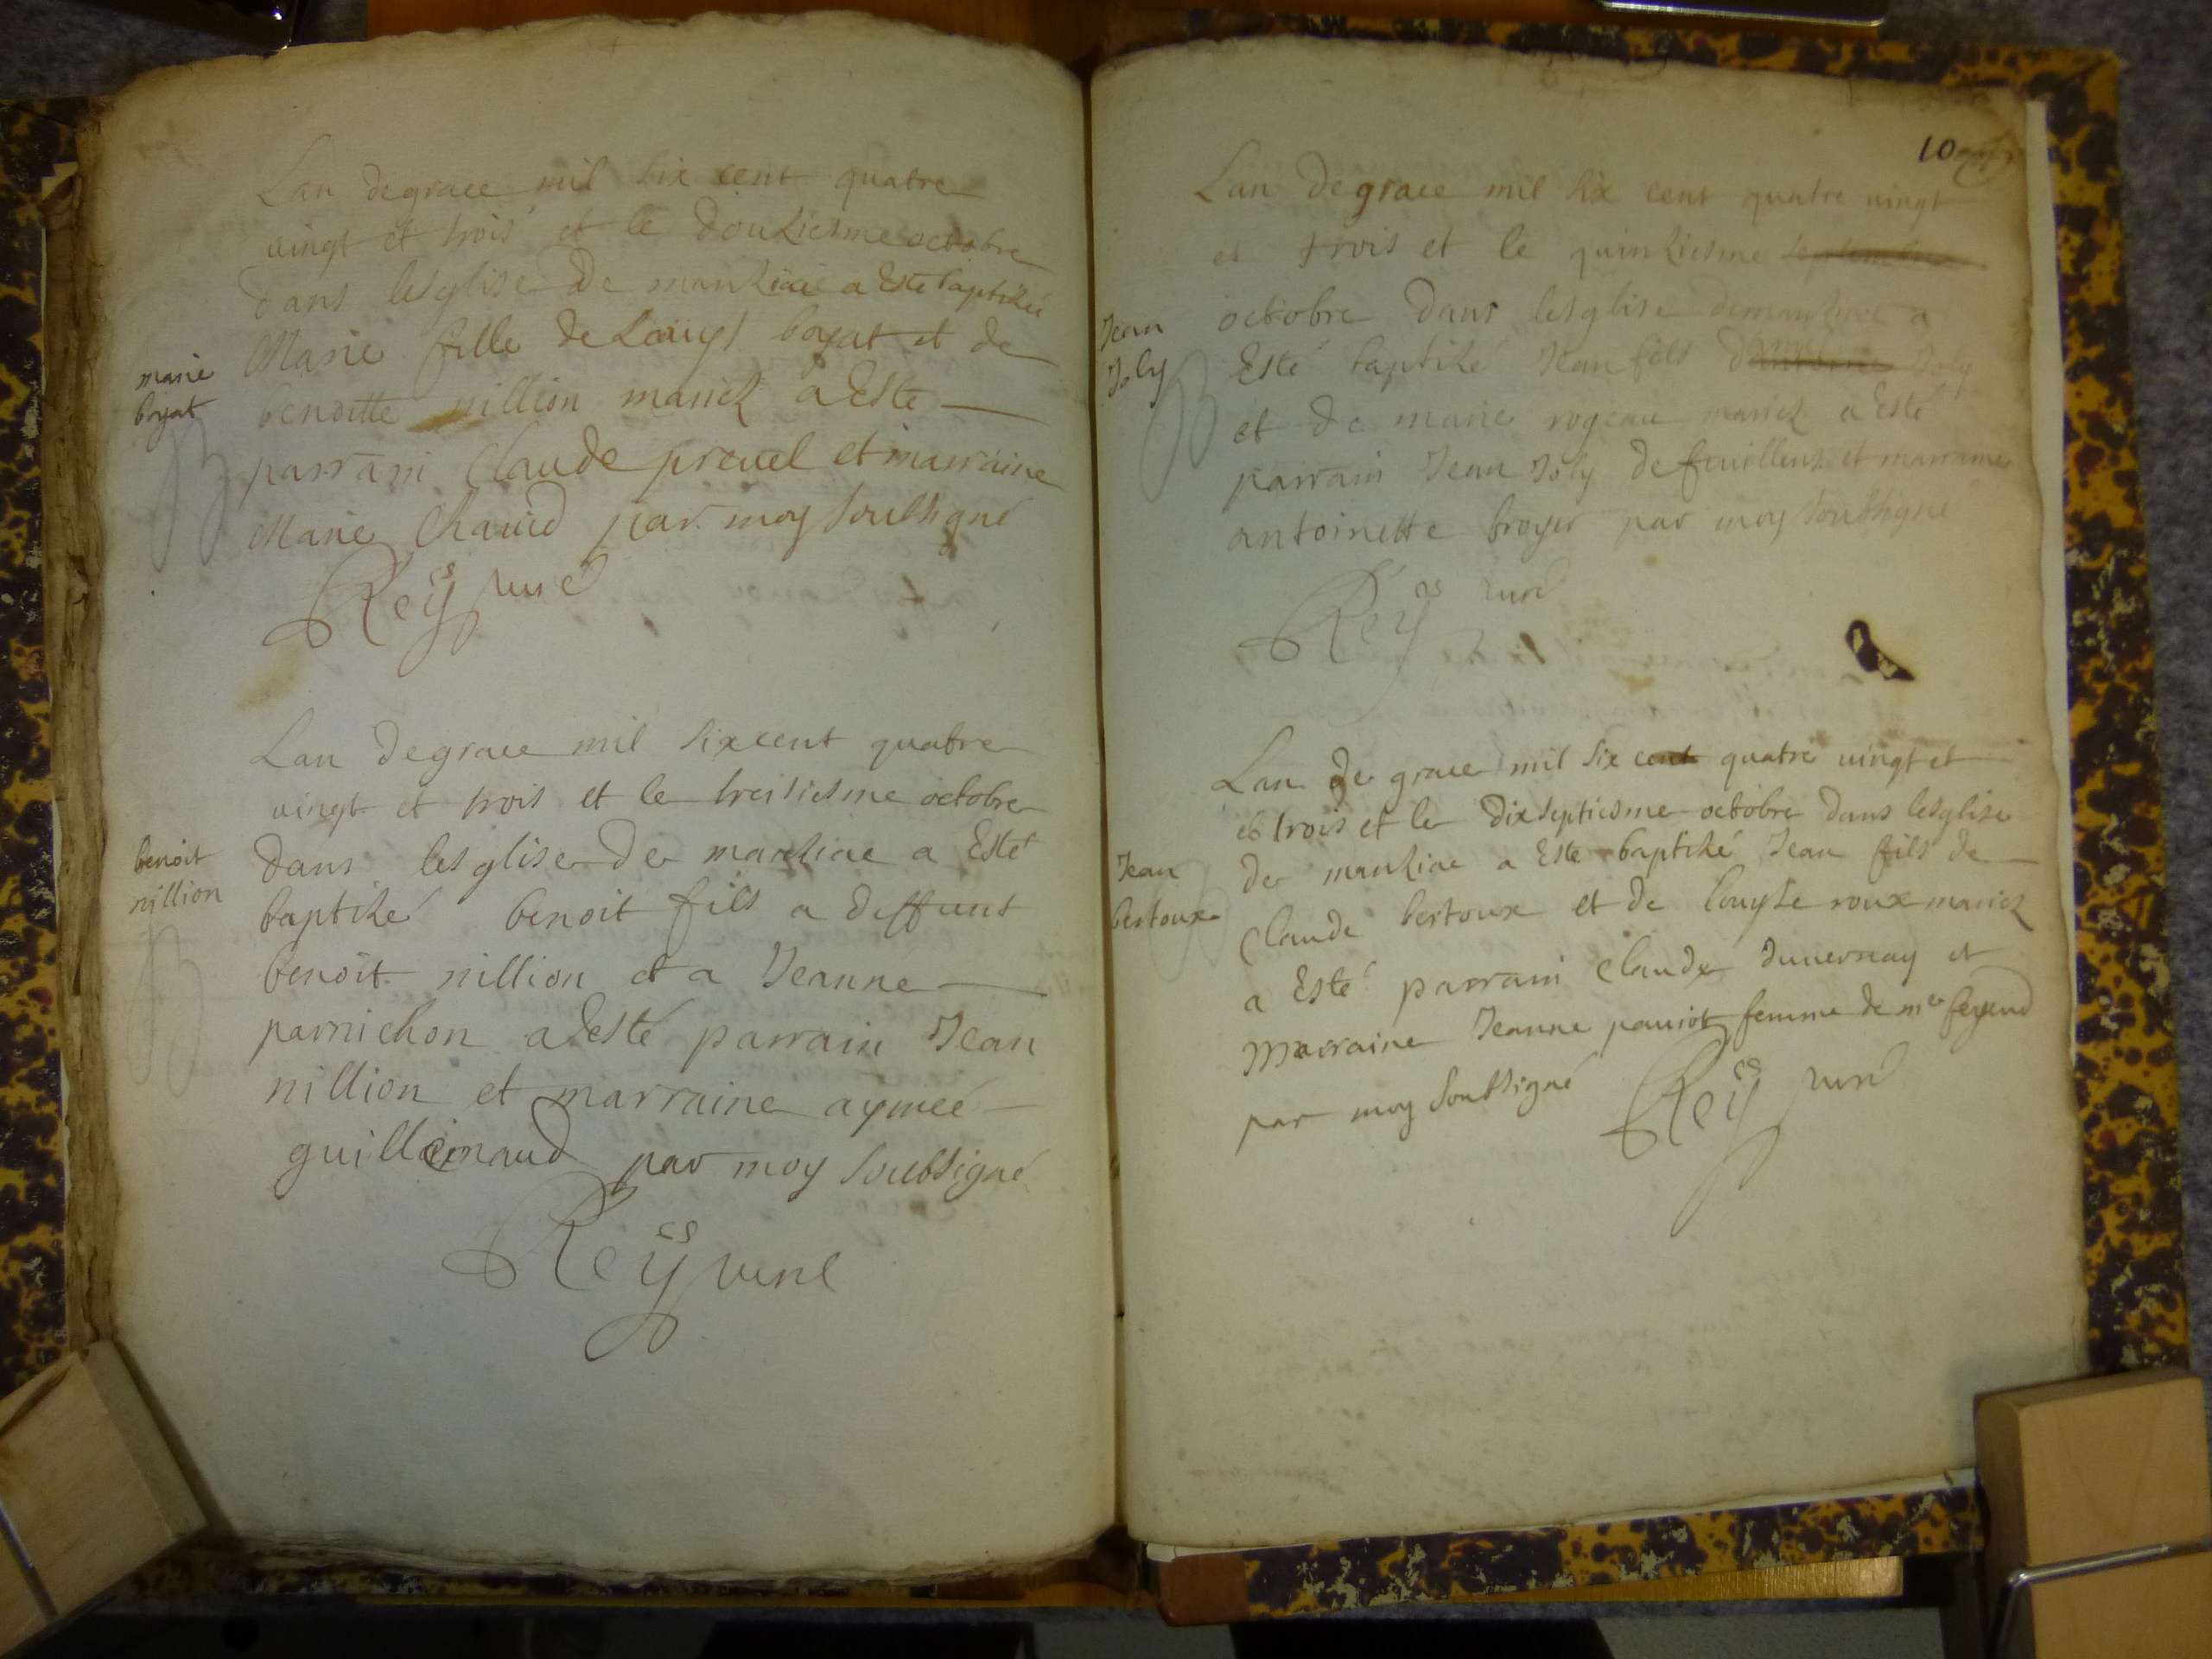 Lan de grace mil six cent quatre
vingt et trois et le douziesme octobre
dans lesglise de manziac a Esté baptizée
Marie fille de Louys boyat et de
marie
boyat
benoitte nillion mariez a Esté
parrain Claude prevel et marraine
Marie Chavid par moy soubsigné
Reÿ curé
Lan de grace mil six cent quatre
vingt et trois et le treisiesme octobre
benoit
nillion
dans lesglise de manziac a Esté
baptizé benoit fils a deffunt
benoit nillion et a Jeanne
parnichon a Esté parrain Jean
nillion et marraine aymeé
guillemaud par moy soubsigné
Reÿ curé
10
Lan de grace mil six cent quatre vingt
et trois et le quinziesme septembre
Jean
Joly
octobre dans lesglise de manziac a
Esté baptizé Jean fils Joly
et de marie rogeau mariez a Esté
parrain Jean Joly de fuillens et marraine
antoinette broyer par moy soubsigné
Reÿ curé
Lan de grace mil six cent quatre vingt et
et trois et le dixseptiesme octobre dans lesglise
Jean
bertoux
de manziac a Esté baptizé Jean fils de
Claude bertoux et de louyse roux mariez
a Esté parrain Claude duvernay et
Marraine Jeanne pauiot femme de mr
par moy soubsigné Reÿ curé